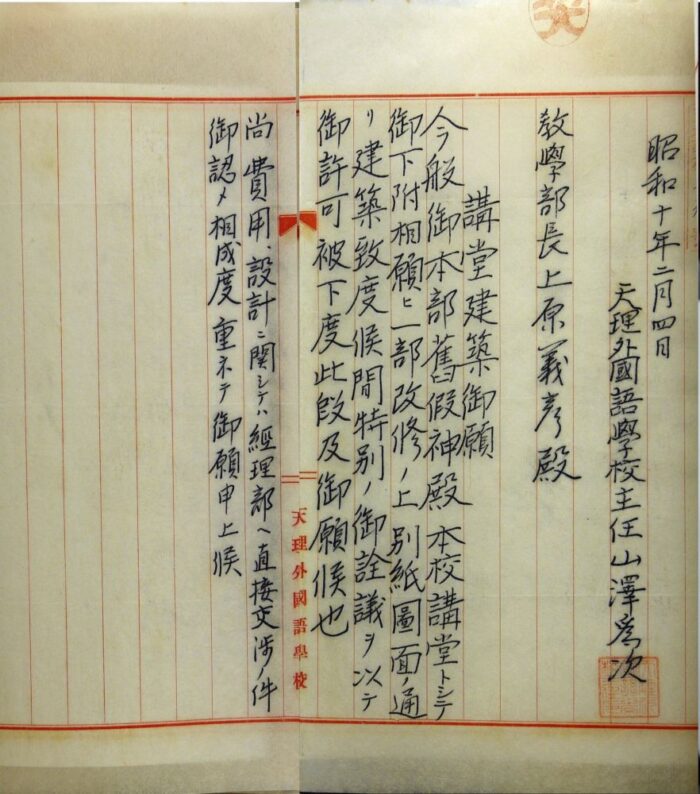 昭和十年二月四日
天理外國語學校主任山澤為次
教學部長上原義彦殿
講堂建築御願
今般御本部舊假神殿本校講堂トシテ
御下附相願ヒ一部改修ノ上別紙圖面ノ通
リ建築致度候間特別ノ御詮議ヲ以テ
御許可被下度此段及御願候也
天理外國語學校
尚費用、設計ニ関シテハ經理部ヘ直接交渉ノ件
御認メ相成度重ネテ御願申上候